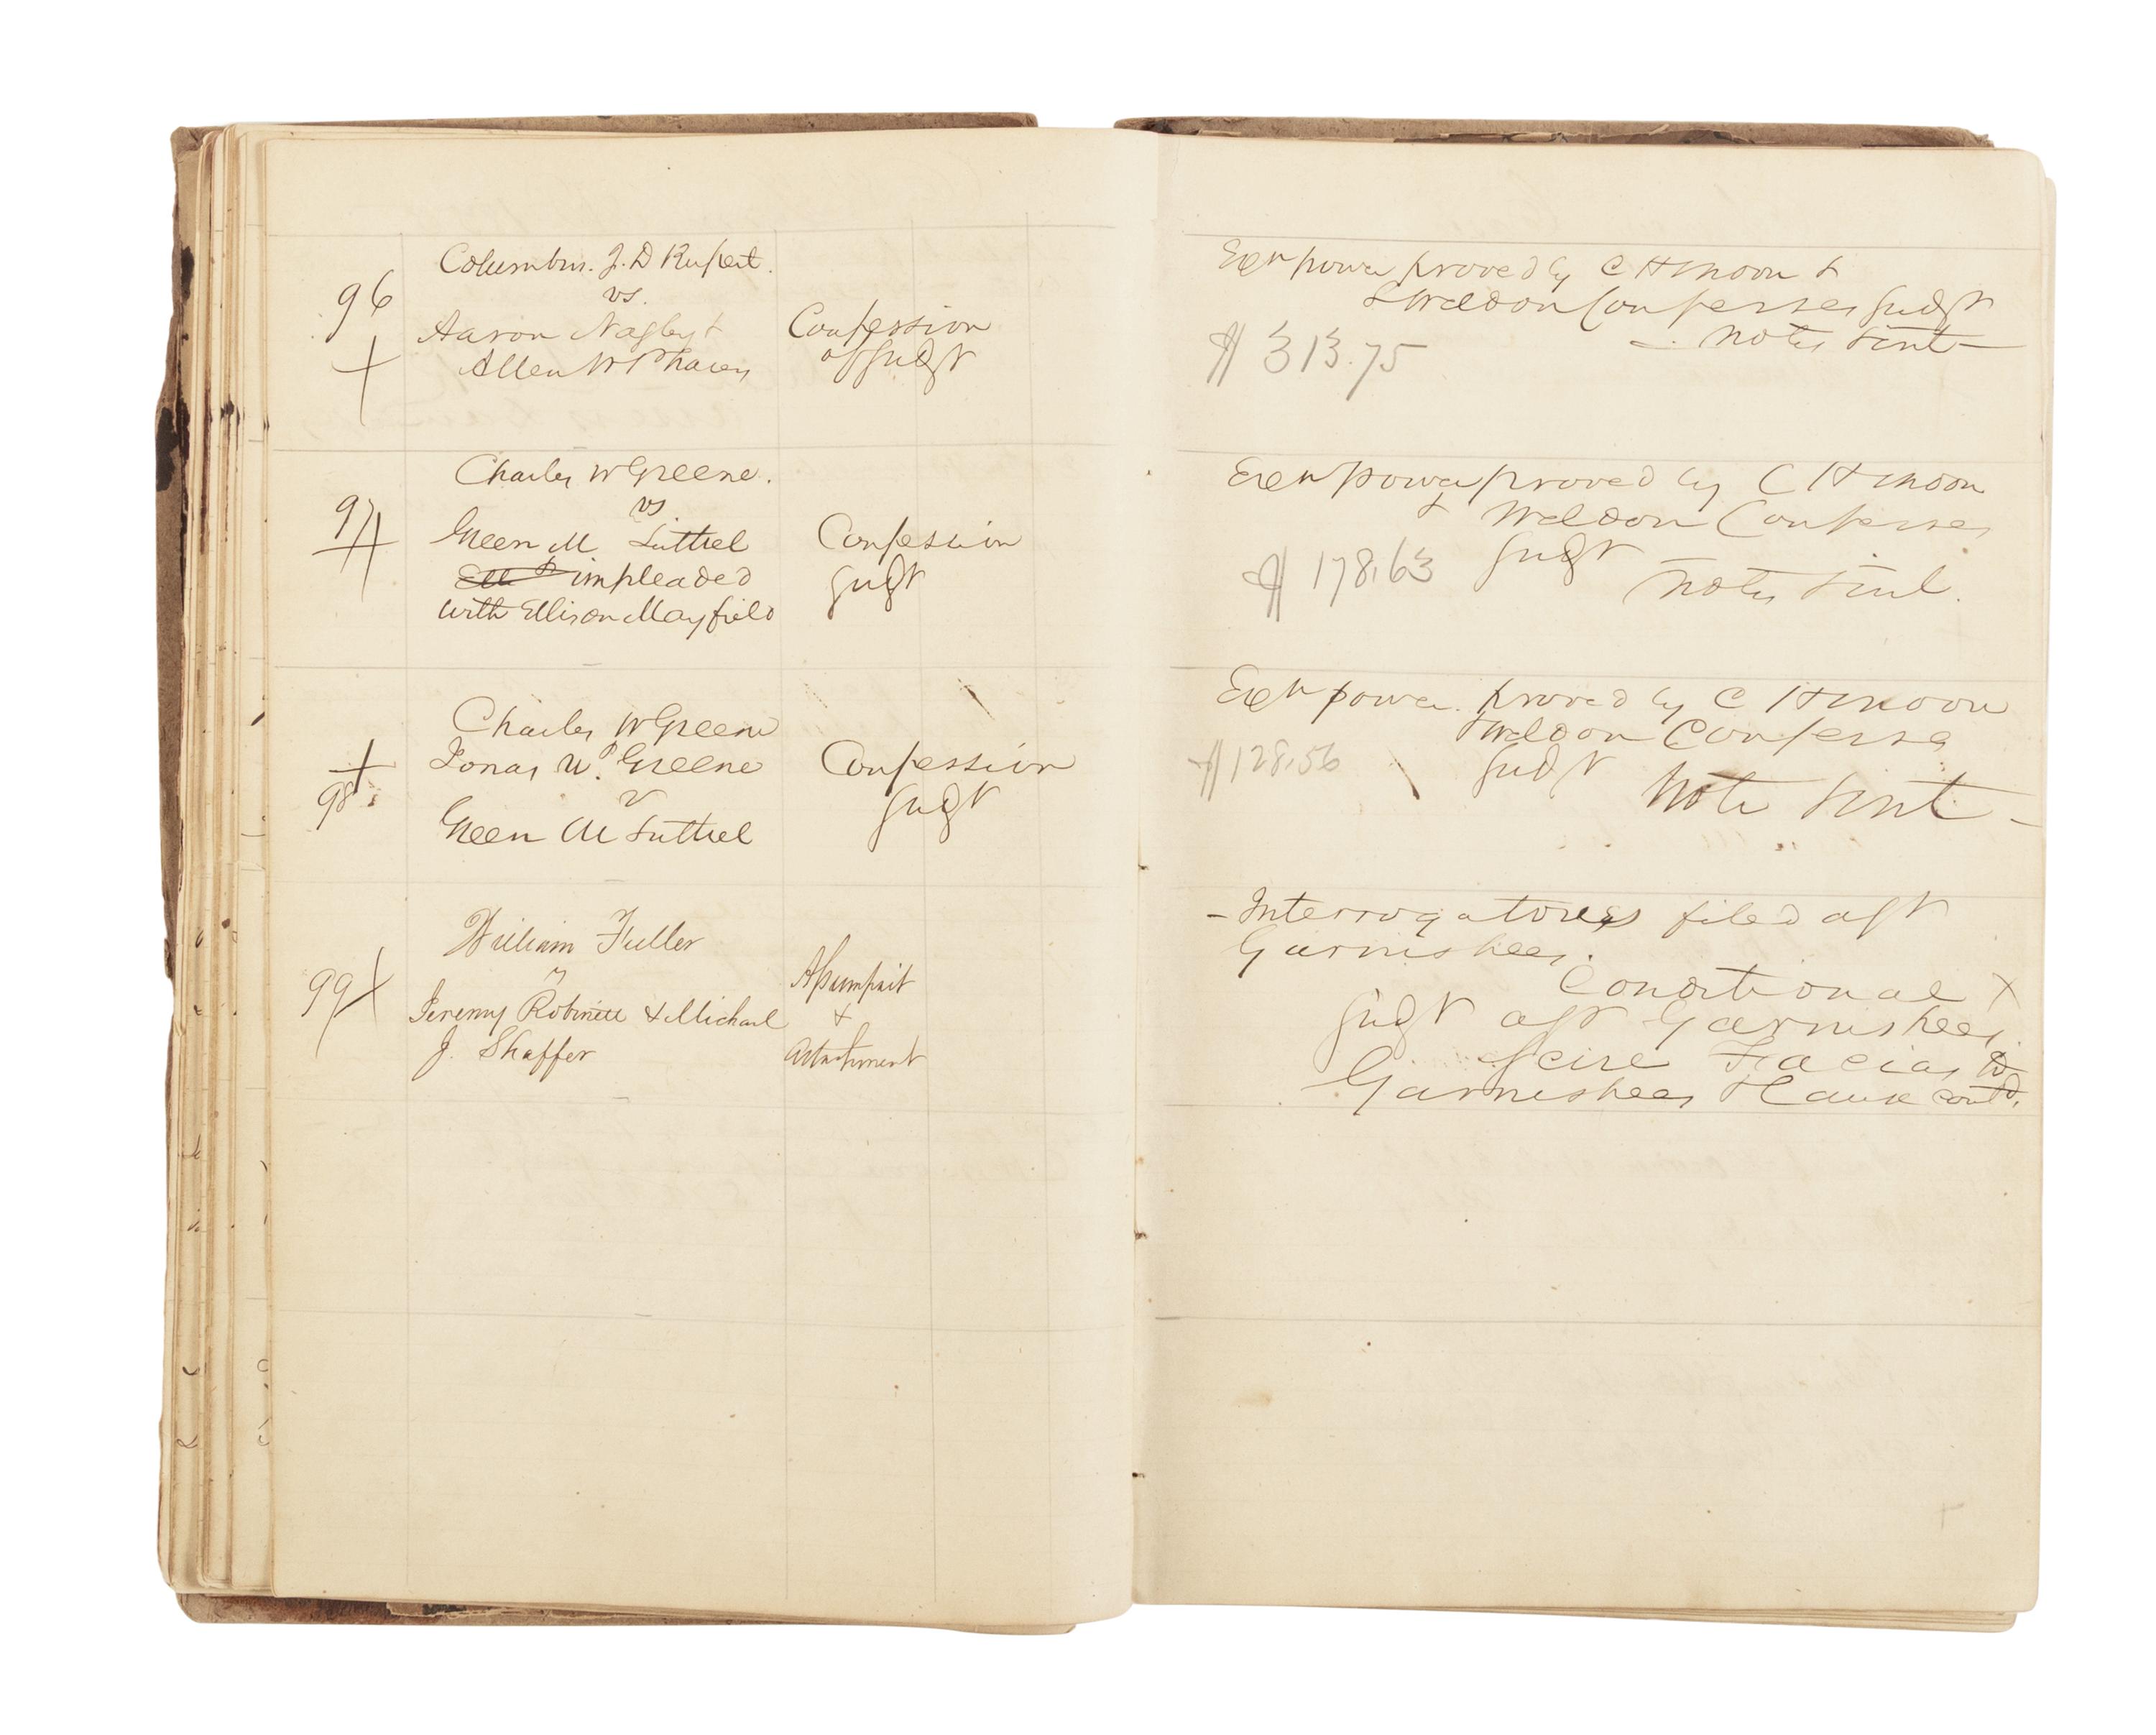 96
Columbus. J. D Rupert.
vs.
Aaron Nagley &
Allen W
Confession
of Judgt
Exen power proved by C H Moon &
& Weldon Confesses Judgt
$313.75
note sent
97
Charles W Greene.
vs
Green M Luttrel
impleaded
with Ellison Mayfield
Confession
Judgt
Exen power proved by C H Moon
& Weldon Confesses
$178.63 Judgt
note sent.
98
Charles W Greene
Jonas W. Greene
v
Green M Luttrel
Confession
Judgt
Exen power. proved by C H Moon
& Weldon Confess
$128.56 Judgt
Note sent
99
William Fuller
v
Jeremy Robinett & Michael
J. Shaffer
Assumpsit
&
Attachment
- Interrogatories filed agt
Garnishees.
Conditional X
Judgt agt Garnishees.
Scire Facias to
Garnishees & Cause contd.